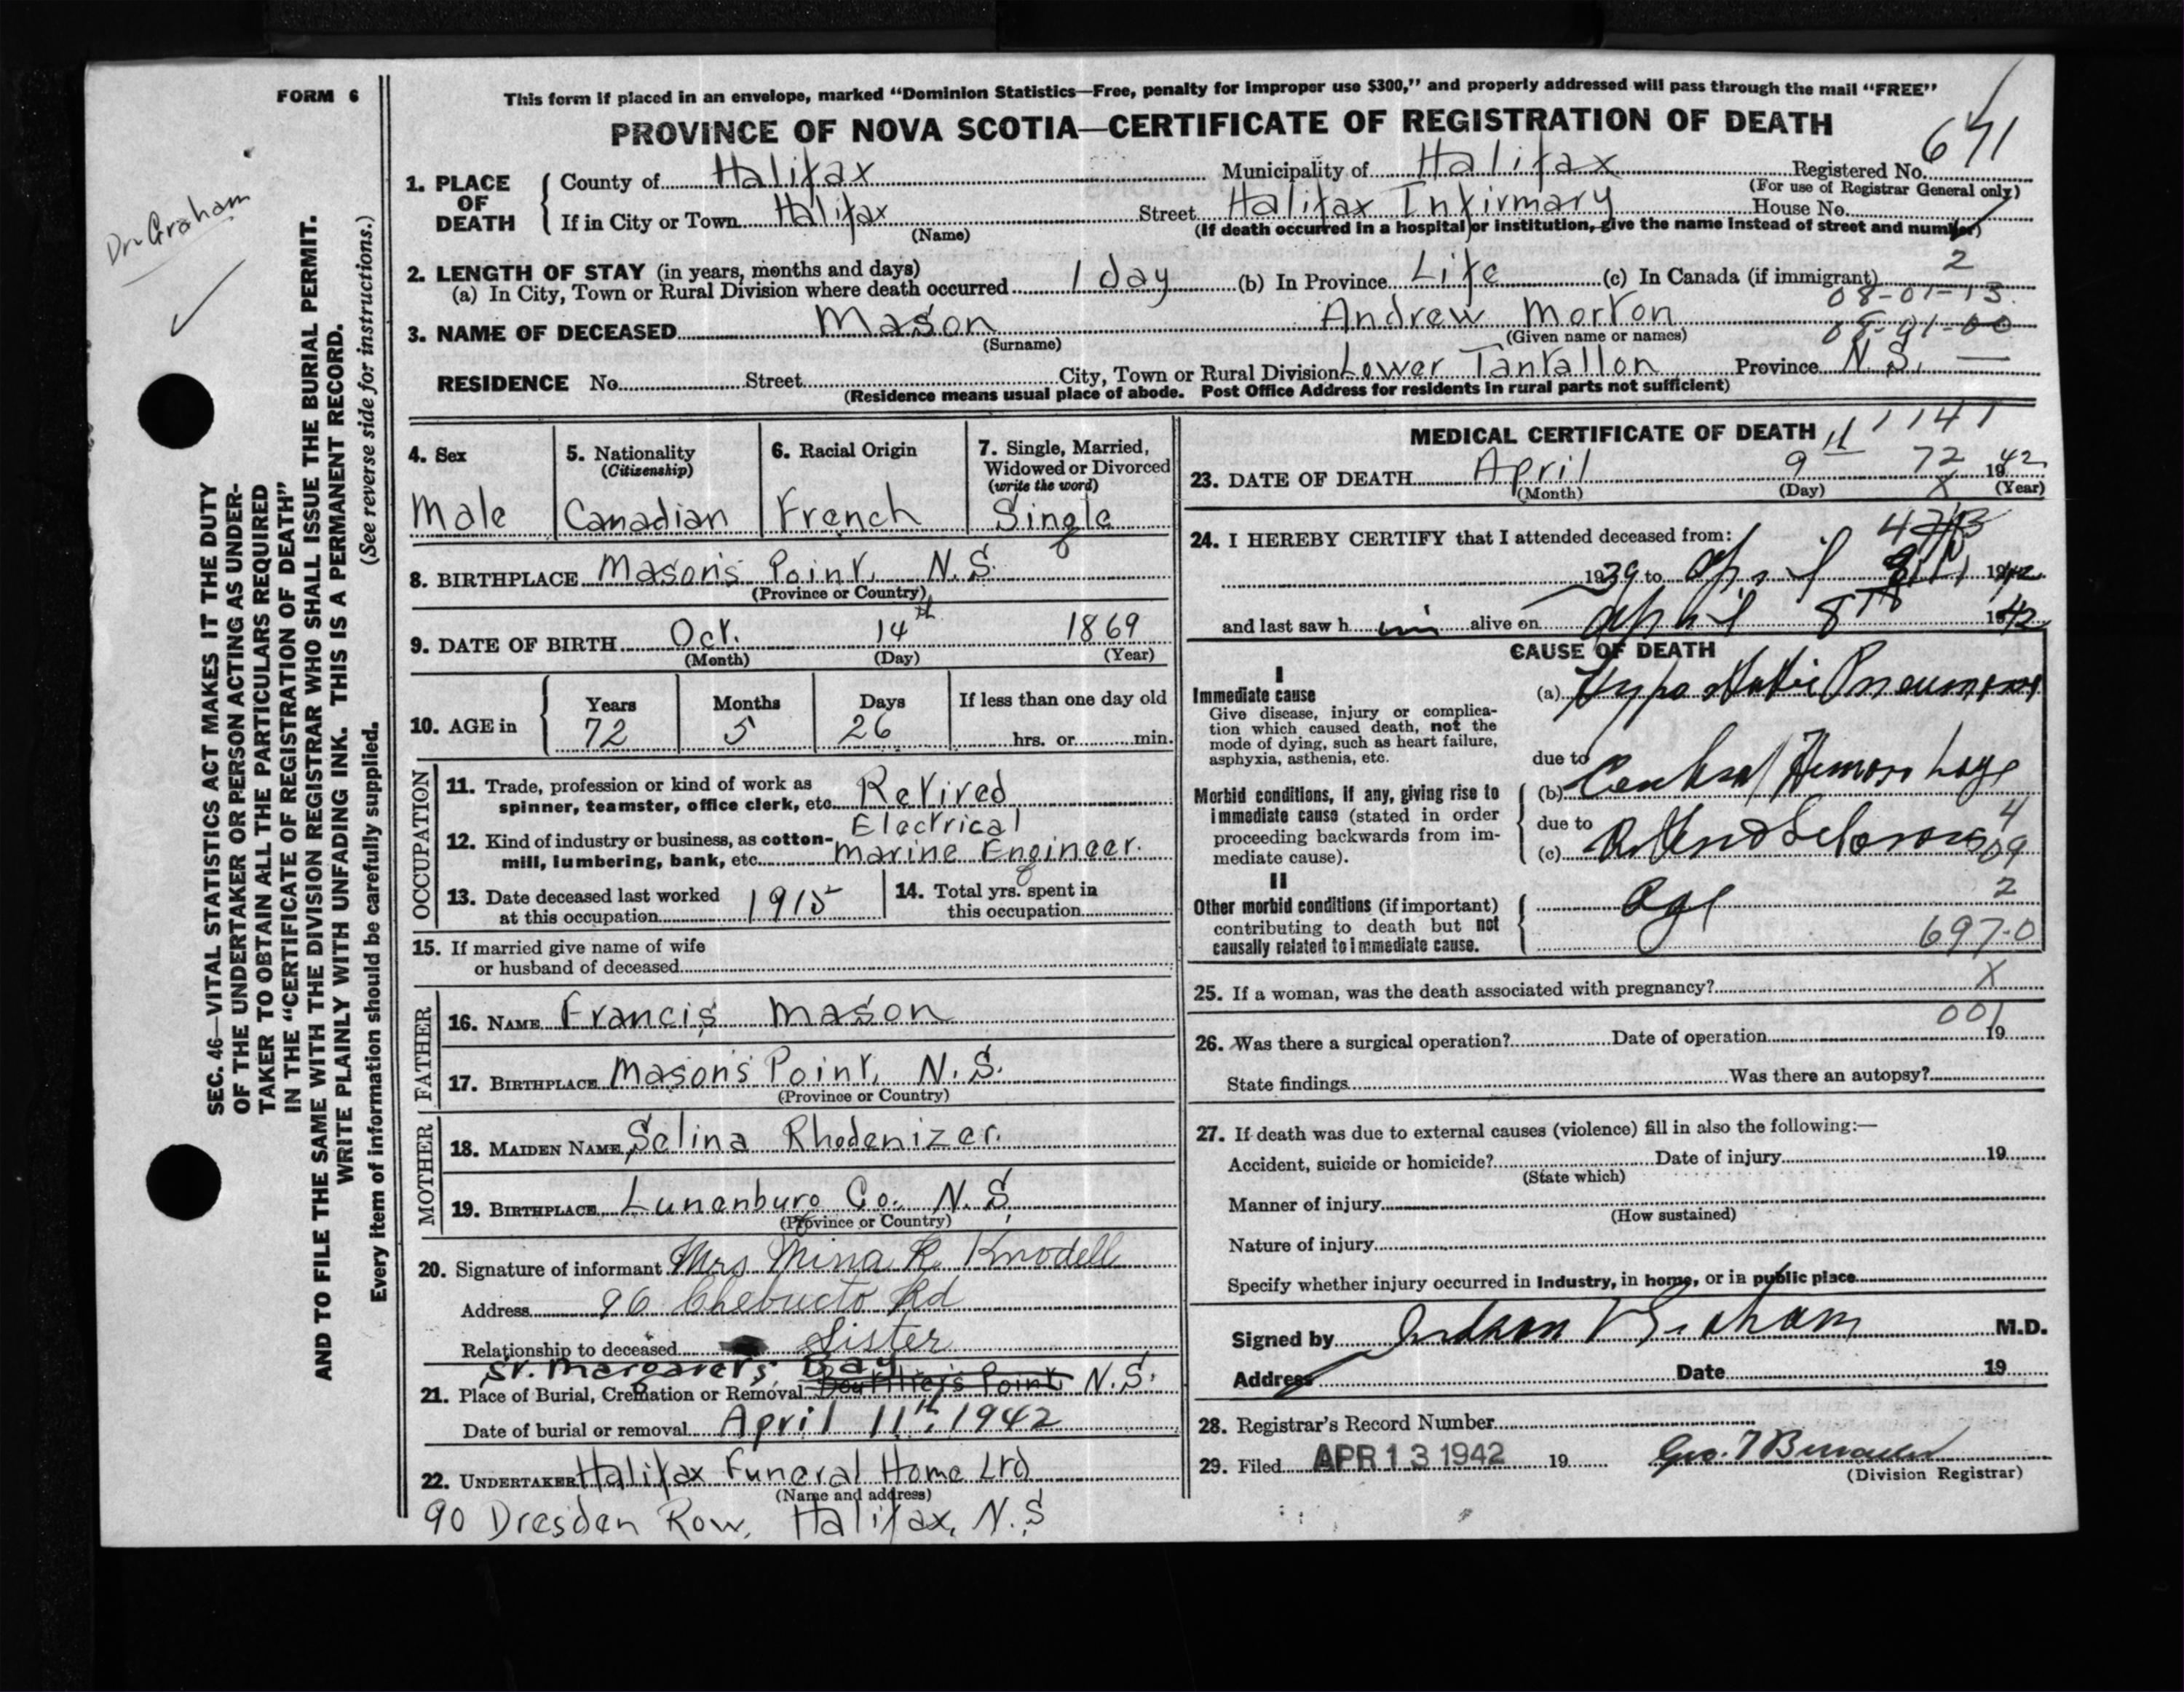 FORM 6
This form if placed in an envelope, marked “Dominion Statistics—Free, penalty for improper use $300,” and properly addressed will pass through the mail “FREE”
PROVINCE OF NOVA SCOTIA—CERTIFICATE OF REGISTRATION OF DEATH
Dr. Graham
SEC. 46—VITAL STATISTICS ACT MAKES IT THE DUTY
OF THE UNDERTAKER OR PERSON ACTING AS UNDER-
TAKER TO OBTAIN ALL THE PARTICULARS REQUIRED
IN THE “CERTIFICATE OF REGISTRATION OF DEATH”
AND TO FILE THE SAME WITH THE DIVISION REGISTRAR WHO SHALL ISSUE THE BURIAL PERMIT.
WRITE PLAINLY WITH UNFADING INK. THIS IS A PERMANENT RECORD.
Every item of information should be carefully supplied. (See reverse side for instructions.)
1. PLACE OF DEATH
County of Halifax Municipality of Halifax Registered No. 671
(For use of Registrar General only)
If in City or Town Halifax Street Halifax Infirmary House No.
(Name) (If death occurred in a hospital or institution, give the name instead of street and number)
2. LENGTH OF STAY (in years, months and days)
(a) In City, Town or Rural Division where death occurred 1 day (b) In Province Life (c) In Canada (if immigrant) 2
08-01-13
3. NAME OF DECEASED Mason Andrew Morton
(Surname) (Given name or names)
RESIDENCE No. Street City, Town or Rural Division Lower Tantallon Province N.S. —
(Residence means usual place of abode. Post Office Address for residents in rural parts not sufficient)
4. Sex
Male
5. Nationality
(Citizenship)
Canadian
6. Racial Origin
French
7. Single, Married,
Widowed or Divorced
(write the word)
Single
8. BIRTHPLACE Mason's Point, N.S.
(Province or Country)
9. DATE OF BIRTH Oct. 14th 1869
(Month) (Day) (Year)
10. AGE in
Years Months Days If less than one day old
72 5 26 hrs. or min.
OCCUPATION
11. Trade, profession or kind of work as
spinner, teamster, office clerk, etc. Retired
Electrical
12. Kind of industry or business, as cotton-
mill, lumbering, bank, etc. Marine Engineer.
13. Date deceased last worked
at this occupation 1915
14. Total yrs. spent in
this occupation
15. If married give name of wife
or husband of deceased
FATHER
16. NAME Francis Mason
17. BIRTHPLACE Mason's Point, N.S.
(Province or Country)
MOTHER
18. MAIDEN NAME Selina Rhodenizer.
19. BIRTHPLACE Lunenburg Co. N.S.
(Province or Country)
20. Signature of informant Mrs Mina R Knodell
Address 96 Chebucto Rd
Relationship to deceased Sister
St. Margaret's Bay
21. Place of Burial, Cremation or Removal Boutilier's Point, N.S.
Date of burial or removal April 11th, 1942
22. UNDERTAKER Halifax Funeral Home Ltd
(Name and address)
90 Dresden Row, Halifax, N.S
MEDICAL CERTIFICATE OF DEATH 1141
23. DATE OF DEATH April 9th 72 1942
(Month) (Day) X (Year)
24. I HEREBY CERTIFY that I attended deceased from:
1939 to April 8th 1942
and last saw h im alive on April 8th 1942
CAUSE OF DEATH
I
Immediate cause
Give disease, injury or complica-
tion which caused death, not the
mode of dying, such as heart failure,
asphyxia, asthenia, etc.
(a) Hypostatic Pneumonia
due to
Morbid conditions, if any, giving rise to
immediate cause (stated in order
proceeding backwards from im-
mediate cause).
(b) Cerebral Hemorrhage
due to
(c) Arteriosclerosis
II
Other morbid conditions (if important)
contributing to death but not
causally related to immediate cause.
Age 2
697-0
25. If a woman, was the death associated with pregnancy? X
001
26. Was there a surgical operation? Date of operation 19
State findings Was there an autopsy?
27. If death was due to external causes (violence) fill in also the following:—
Accident, suicide or homicide? Date of injury 19
(State which)
Manner of injury
(How sustained)
Nature of injury
Specify whether injury occurred in Industry, in home, or in public place
Signed by Judson V Graham M.D.
Address Date 19
28. Registrar's Record Number
29. Filed APR 13 1942 19
(Division Registrar)